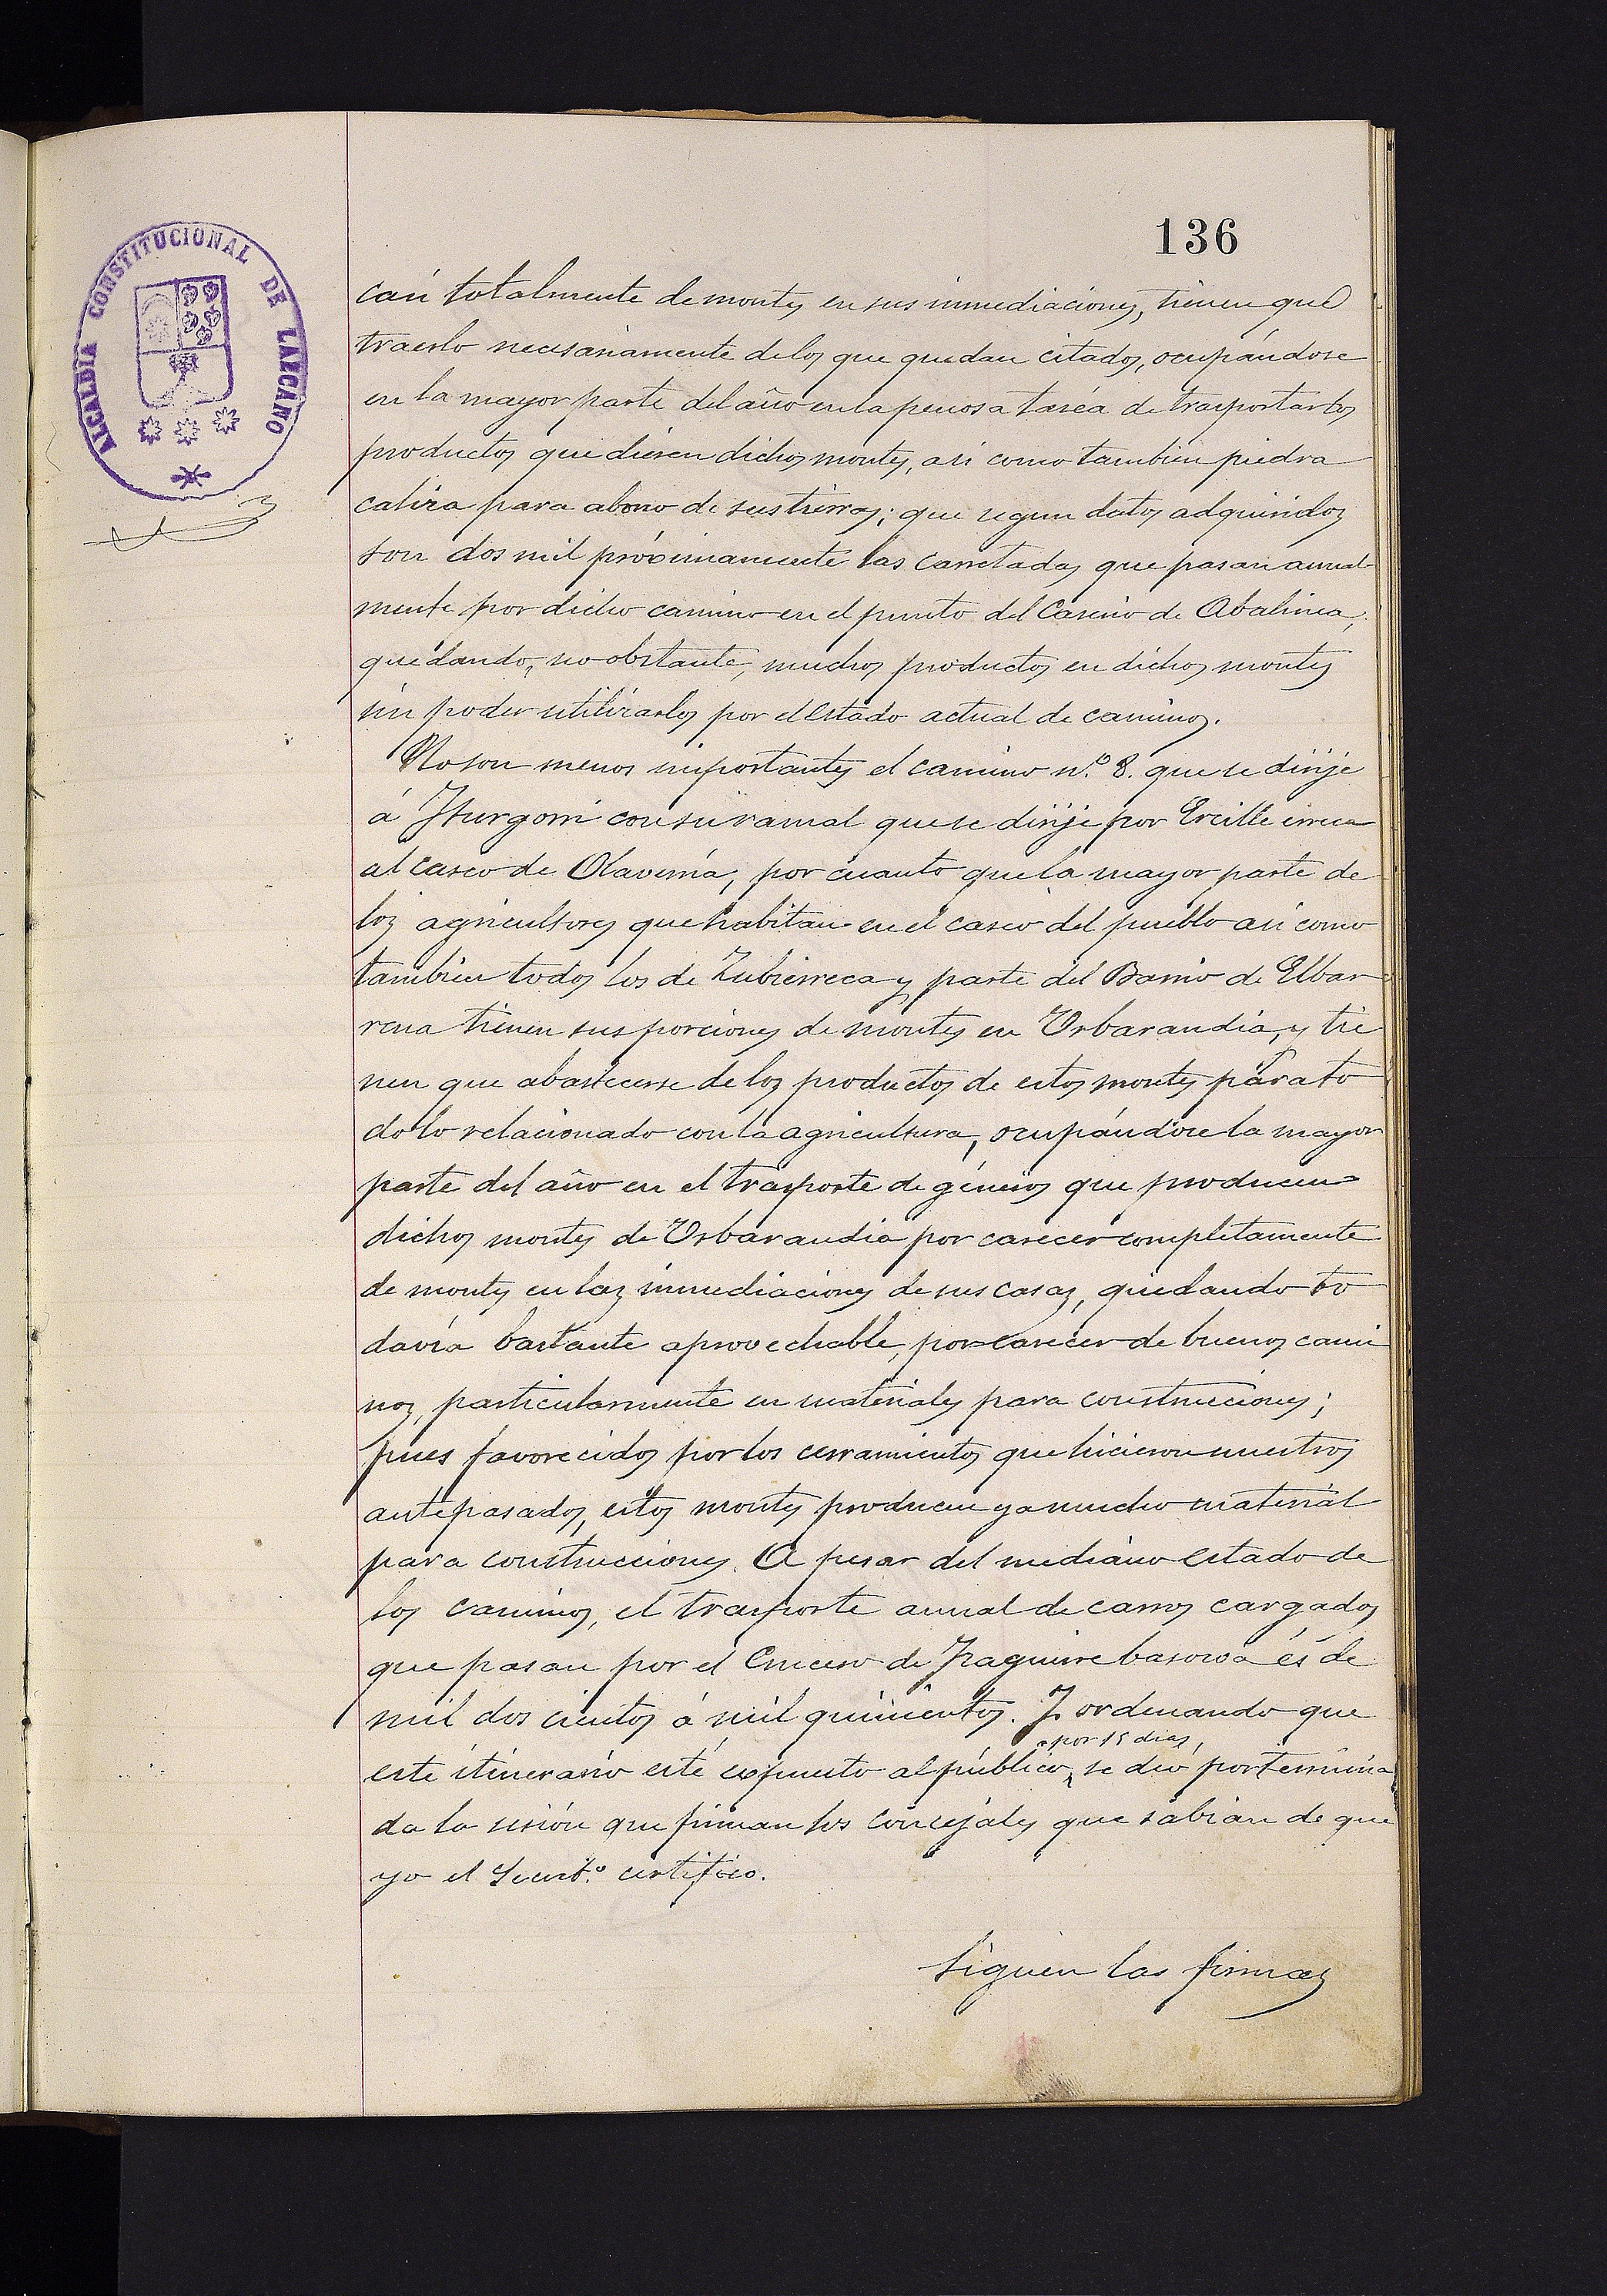 136
ALCALDIA CONSTITUCIONAL DE LAZCANO
can totalmente de montes en sus inmediaciones, tienen que
traerlo necesariamente de los que quedan citados, ocupándose
en la mayor parte del año en la penosa taréa de trasportar los
productos que dieren dichos montes, asi como tambien piedra
caliza para abono de sus tierras; que segun datos adquiridos
son dos mil próximamente las carretadas que pasan anual-
mente por dicho camino en el punto del Caserio de Abalinea,
quedando, no obstante, muchos productos en dichos montes
sin poder utilizarlos por el estado actual de caminos.
No son menos importantes el camino n.º 8. que se dirije
á Iturgorri con su ramal que se dirije por Ercille erreca
al casco de Olaverría, por cuanto que la mayor parte de
los agricultores que habitan en el casco del pueblo asi como
tambien todos los de Zubierreca y parte del Barrio de Elbar
rena tienen sus porciones de montes en Urbarandia, y tie
nen que abastecerse de los productos de estos montes para to
do lo relacionado con la agricultura, ocupándose la mayor
parte del año en el trasporte de géneros que producen
dichos montes de Urbarandia por carecer completamente
de montes en las inmediaciones de sus casas, quedando to
davía bastante aprovechable, por carecer de buenos cami
nos, particularmente en materiales para construcciones;
pues favorecidos por los cerramientos que hicieron nuestros
antepasados, estos montes producen ya mucho material
para construcciones. A pesar del mediano estado de
los caminos, el trasporte anual de carros cargados
que pasan por el Crucero de Iraguirre basoroa és de
mil dos cientos á mil quinientos. Y ordenando que
por 15 dias,
este itinerario esté expuesto al público, se dió por termina
da la sesión que firman los concejales que sabian de que
yo el Secret.º certifico.
Siguen las firmas